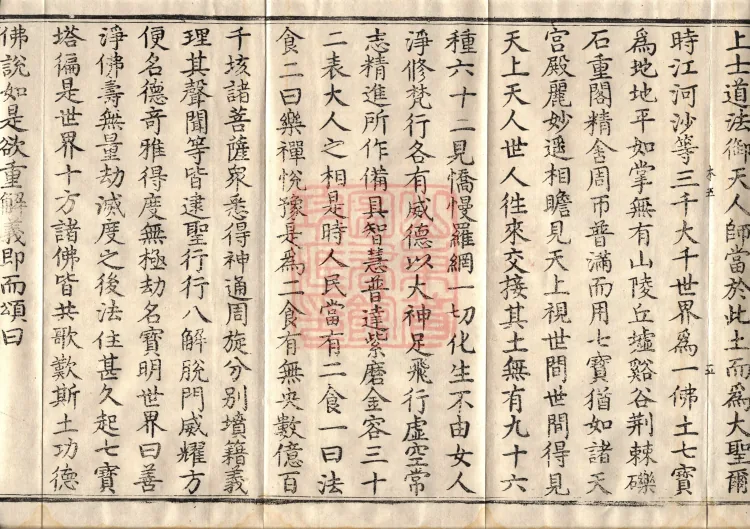 上士道法御天人師當於此土而爲大聖爾
時江河沙等三千大千世界爲一佛土七寶
爲地地平如掌無有山陵丘墟谿谷荆棘礫
石重閣精舍周帀普滿而用七寶猶如諸天
宮殿麗妙遥相瞻見天上視世間世間得見
天上天人世人徃來交接其土無有九十六
種六十二見憍慢羅網一切化生不由女人
淨修梵行各有威德以大神足飛行虛空常
志精進所作備具智慧普達紫磨金容三十
二表大人之相是時人民當有二食一曰法
食二曰樂禪悅豫是爲二食有無央數億百
千垓諸菩薩衆悉得神通周旋分别墳籍義
理其聲聞等皆逮聖行行八解脫門威耀方
便名德奇雅得度無極劫名寶明世界曰善
淨佛壽無量劫滅度之後法住甚久起七寶
塔徧是世界十方諸佛皆共歌歎斯土功德
佛說如是欲重解義即而頌曰